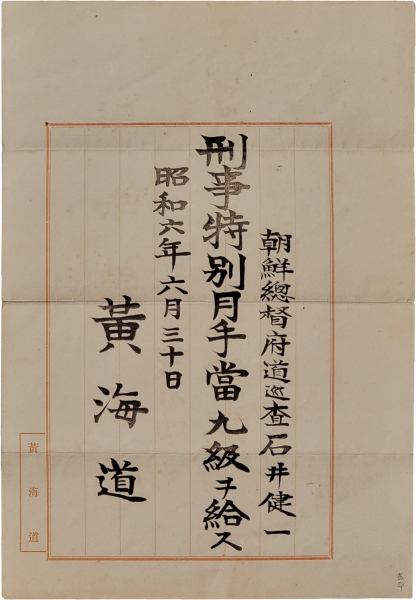 朝鮮總督府道巡査石井健一
刑事特別月手當九級ヲ給ス
昭和六年六月三十日
黃海道
黃海道